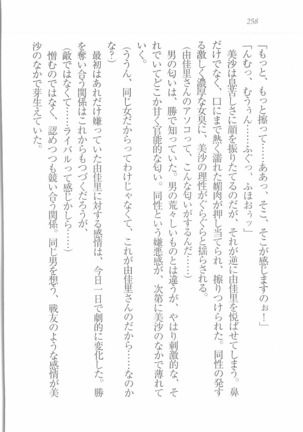 258
「もっと、もっと擦って……ああっ、そこ、そこが感じますのぉ!」
「んむっ、むうっ……ふぐっ、ふほおぉッ」
美沙は息苦しさに顔を振りたてるのだが、それが逆に由佳里を悦ばせてしまう。鼻
だけでなく、口にまで熱く濡れた媚肉が押し当てられ、擦りつけられた。同性の発す
る激しく濃厚な女臭に、美沙の理性がぐらぐらと揺らされる。
(由佳里さんのアソコって、こんな匂いがするんだ……)
男の匂いは、勝で知っていた。男の荒々しいものとは違うが、やはり刺激的な、そ
れでいてどこか甘く官能的な匂い。同性という嫌悪感が、次第に美沙のなかで薄れて
いく。
(ううん、同じ女だからってわけじゃなくて、これが由佳里さんのだから……なのか
な?)
最初はあれだけ嫌っていた由佳里に対する感情は、今日一日で劇的に変化した。勝
を奪い合う関係はこれからもつづくだろうが、
(敵ではなくて……ライバルって感じかしら……)
憎むのではなく、認めつつも競い合う関係。同じ男を想う、戦友のような感情が美
沙のなかで芽生えていた。